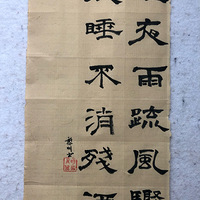 夜雨疏風驟
睡不消殘酒